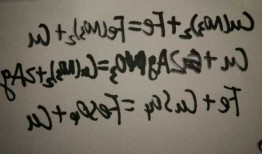 Cu(NO₃)₂+Fe=Fe(NO₃)₂+Cu
Cu+2AgNO₃=Cu(NO₃)₂+2Ag
Fe+CuSO₄=FeSO₄+Cu